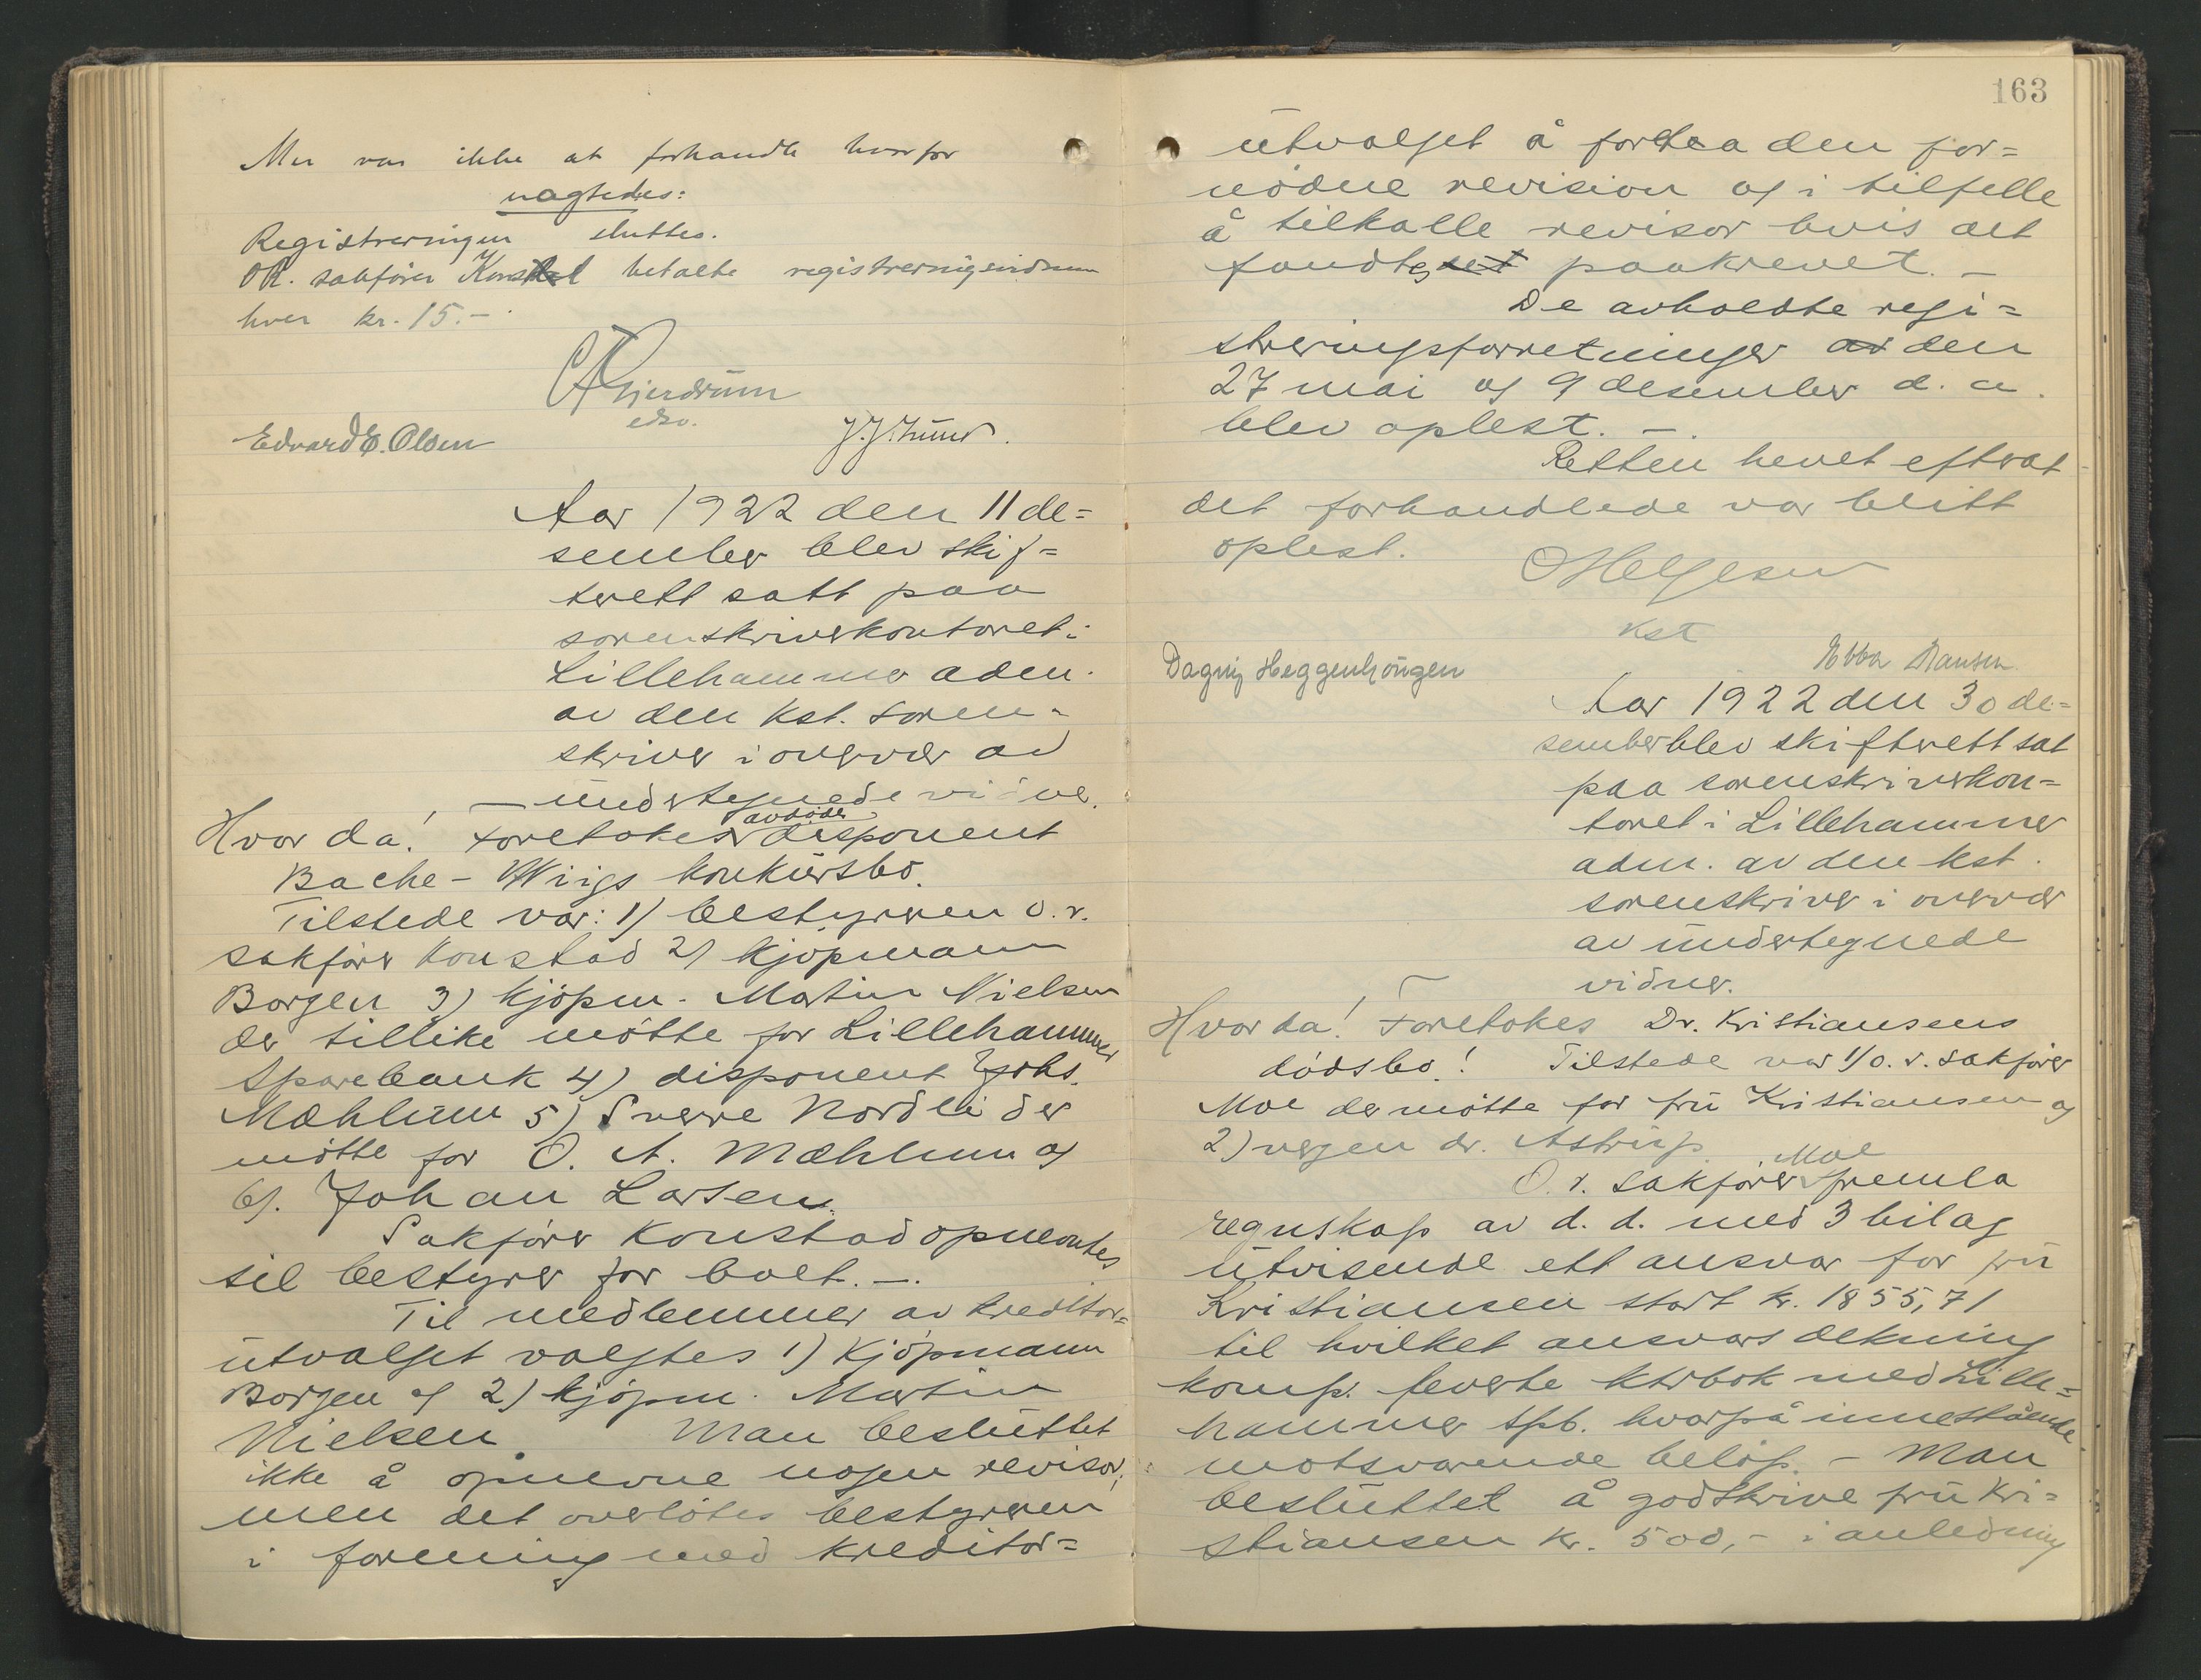 Mer var ikke at forhandle hvorfor
vagtedes:
Registreringen sluttes.
OR. sakfører Konstad betalte registreringsvidnene
hver kr. 15.-
edsv.
Edvard E. Olsen
J. J. Lund.
Aar 1922 den 11 de=
sember blev skif=
terett satt paa
sorenskriverkontoret i
Lillehammer adm.
av den kst. soren-
skriver i overvær av
undertegnede vidne.
Hvor da! Foretokes avdøde disponent
Bache-Wiigs konkursbo.
Tilstede var: 1) bestyreren o.r.
sakfører Konstad 2) kjøpmann
Borgen 3) kjøpm. Martin Nielsen
der tillike møtte for Lillehammer
Sparebank 4) disponent Johs.
Mæhlum 5) Sverre Nordli der
møtte for O. A. Mæhlum og
6). Johan Larsen.
Sakfører Konstad opnevntes
til bestyrer for boet. -.
Til medlemmer av kreditor=
utvalget valgtes 1) Kjøpmann
Borgen og 2) kjøpm. Martin
Nielsen. Man besluttet
ikke å opnevne nogen revisor,
men det overlotes bestyreren
i forening med kreditor=
163
utvalget å foreta den for=
nødne revision og i tilfelle
å tilkalle revisor hvis det
fandtes paakrevet. -
De avholdte regi=
streringsforretninger av den
27 mai og 9 desember d. a.
blev oplest. -.
Retten hevet efterat
det forhandlede var blitt
oplest.
OHelgesen
kst
Dagny Heggenhougen
Ebba Hansen
Aar 1922 den 30 de=
sember blev skifterett sat
paa sorenskriverkon=
toret i Lillehammer
adm. av den kst.
sorenskriver i overvær
av undertegnede
vidner.
Hvor da! Foretokes Dr. Kristiansens
dødsbo! Tilstede var 1/ o.r. sakfører
Moe der møtte for fru Kristiansen og
2) vergen dr. Astrup.
O.r. sakfører Moe fremla
regnskap av d.d. med 3 bilag
utvisende ett ansvar for fru
Kristiansen stort kr. 1855,71
til hvilket ansvars dekning
komp. leverte ktrbok med Lille=
hammer Spb. hvorpå innestående
motsvarende beløp. - Man
besluttet å godskrive fru Kri=
stiansen kr. 500,- i anledning